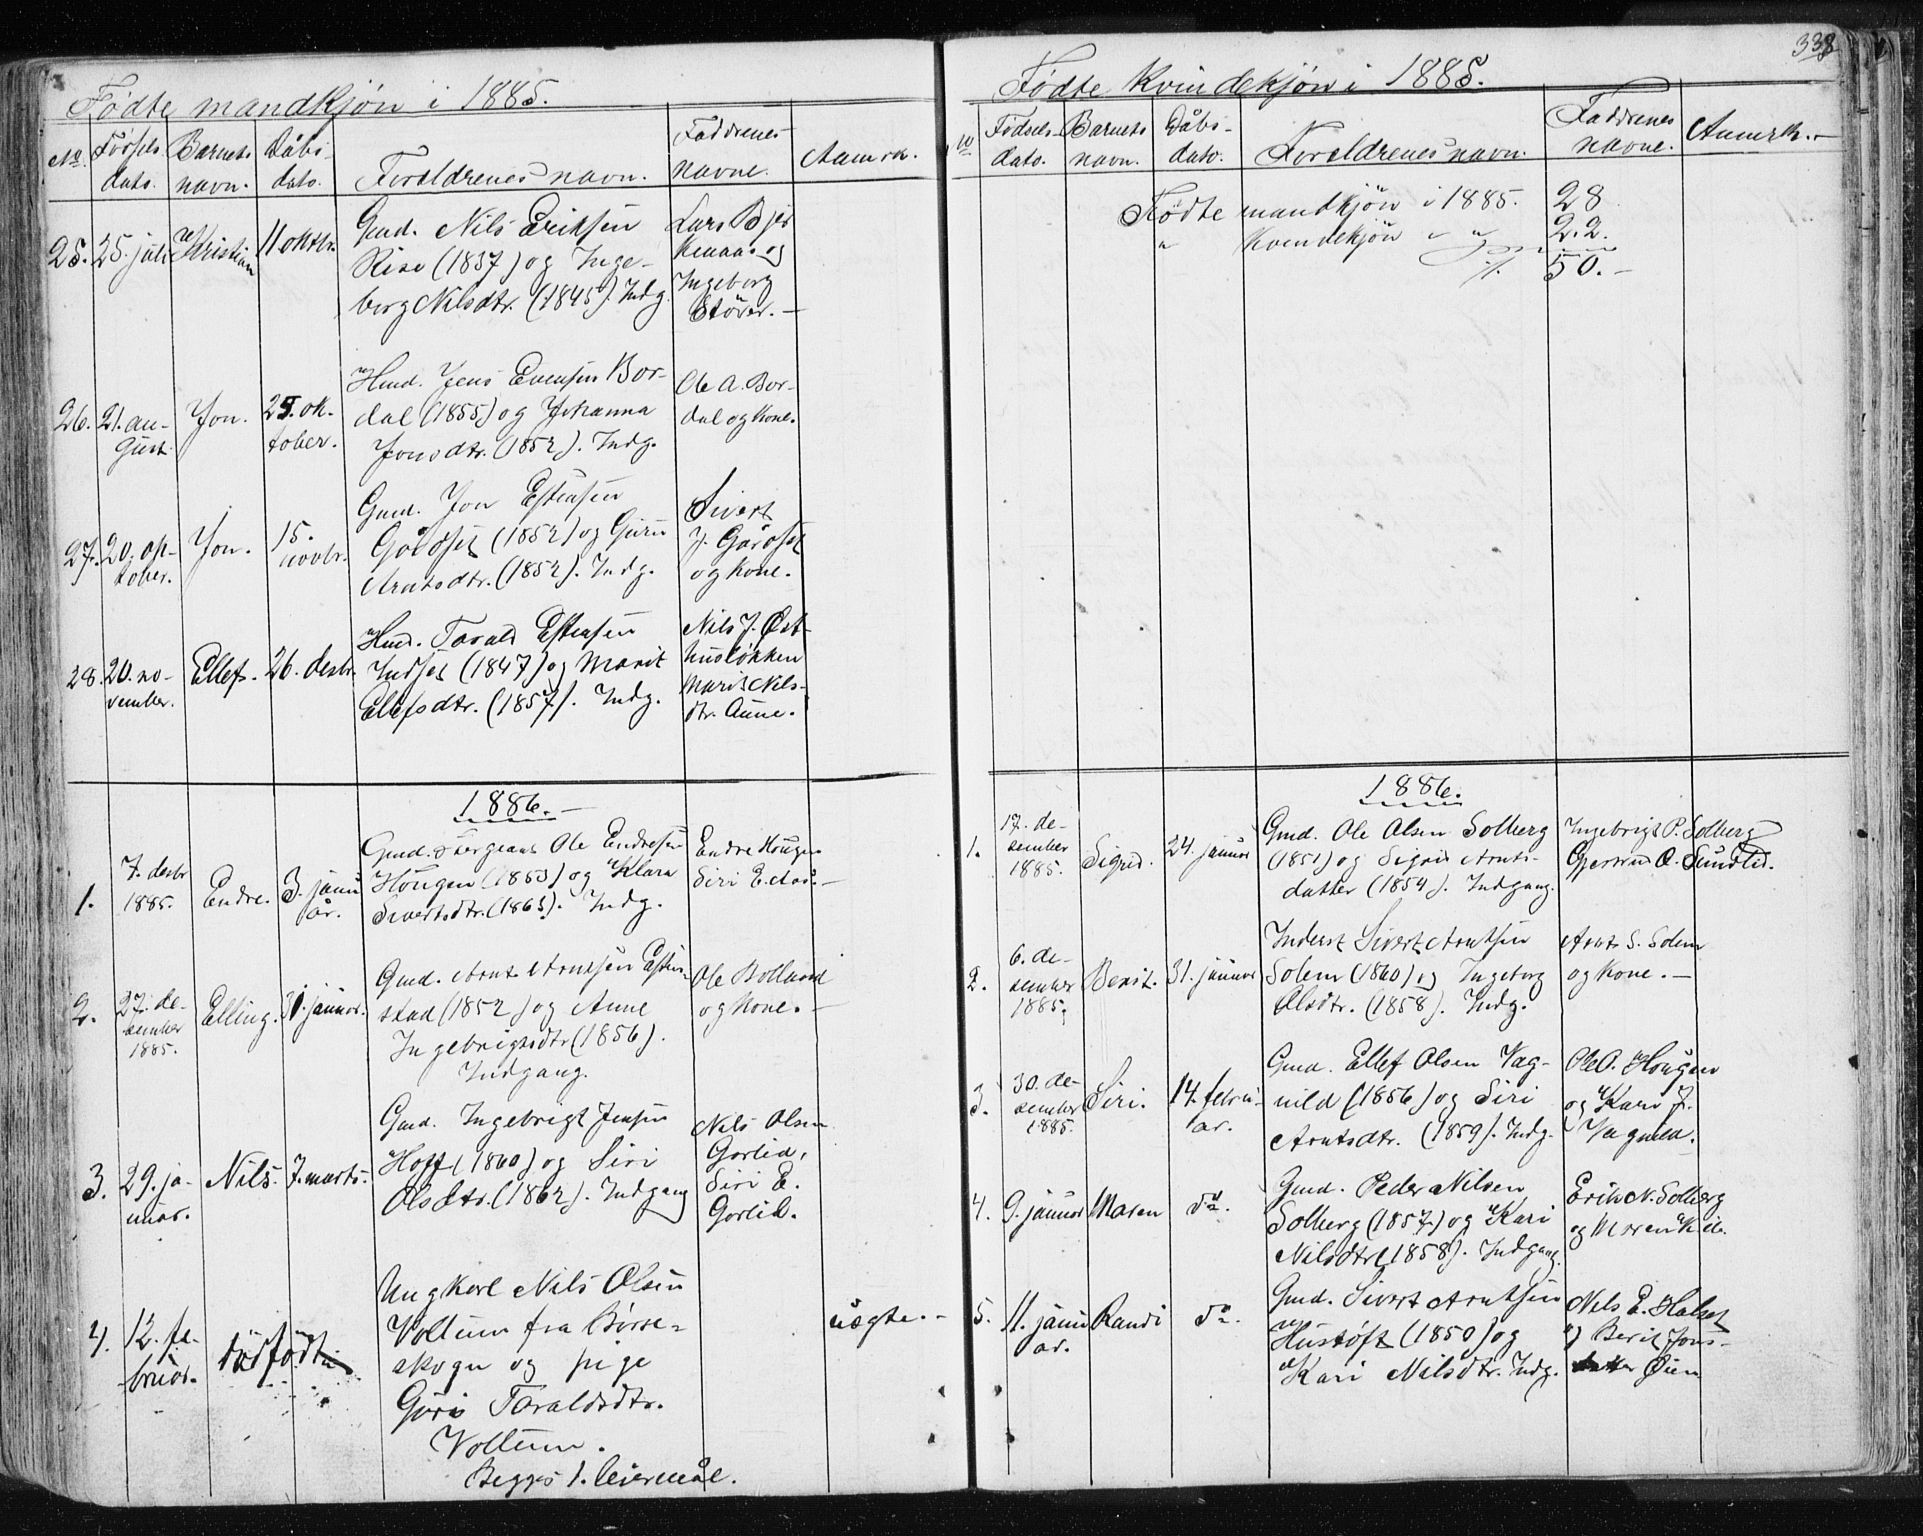 Fødte mandkjøn i 1885.
No. Fødsels dato. Barnets navn. Dåbs dato. Foreldrenes navn. Faddrenes navne. Anmrk.
25. 25. juli Kristian 11 oktbr. Gmd. Nils Eriksen
Rise (1837) og Inge-
borg Nilsdtr. (1845). Indg.
Lars Bjer
kenaas og
Ingeborg
Stöver. –
26. 21. au-
gust. Jon. 25. ok-
tober. Hmd. Jens Evensen Bor-
dal (1855) og Johanna
Jonsdtr. (1852). Indg.
Ole A. Bor-
dal og kone.
27. 20. ok-
tober. Jon. 15.
novbr. Gmd. Jon Estensen
Gåvåset (1852) og Guru
Arntsdtr. (1852). Indg.
Sivert
J. Gåvåset
og kone.
28. 20. no-
vember. Ellef. 26. desbr. Hmd. Tarald Estensen
Indset (1847) og Marit
Elefsdtr. (1857). Indg.
Nils J. Øst-
husløkken
Marit Nils-
dtr. Aune.
1886. –
1. 7. desbr
1885. Endre. 3. janu
ar. Gmd. Sergeant Ole Endresen
Hougen (1853) og Klara
Sivertsdtr. (1863). Indg.
Endre Hougen
Siri E. Aas. –
2. 27. de-
sember
1885. Elling. 31. januar. Gmd. Arnt Arntsen Esten-
stad (1852) og Anne
Ingebrigtsdtr (1856).
Indgang.
Ole Bolland
og kone. –
3. 29. ja-
nuar. Nils. 7. marts. Gmd. Ingebrigt Jensen
Hoff (1860) og Siri
Olsdtr. (1862). Indgang
Nils Olsen
Gorlid,
Siri E.
Gorlid.
4. 12. fe-
bruar. dödfödt Ungkarl Nils Olsen
Vollum fra Børse-
skogn og pige
Gøri Taraldsdtr.
Vollum.
Begges 1. leiermål.
uægte. –
338
Fødte kvindekjøn i 1885.
No Fødsels- dato. Barnets navn. Dåbs- dato. Foreldrenes navn. Faddrenes navne. Anmrk. –
Födte mandkjön i 1885. 28
" kvindekjön " " 22.
50. –
1886.
1. 17. de-
sember
1885. Sigrid. 24. januar Gmd. Ole Olsen Solberg
(1851) og Sigrid Arnts-
datter (1854). Indgang.
Ingebrigt P. Solberg
Gjertrud O. Sundlid.
2. 6. de-
sember
1885. Berit. 31. januar Inderst Sivert Arntsen
Solem (1860) og Ingeborg
Olsdtr. (1858). Indg.
Arnt S. Solem
og kone. –
3. 30. de-
sember
1885. Siri. 14. febru-
ar. Gmd. Ellef Olsen Vag-
nild (1856) og Siri
Arntsdtr. (1859). Indg.
Ole O. Hougen
og Kari J.
Vagnild.
4. 9. januar Maren do. Gmd. Peder Nilsen
Solberg (1857) og Kari
Nilsdtr (1858). Indgang.
Erik N. Solberg
og Maren
5. 11. janu
ar. Randi do. Gmd. Sivert Arntsen
Hustöft (1850) og
Kari Nilsdtr. Indg.
Nils E. Halset
og Berit Jons-
datter Øien